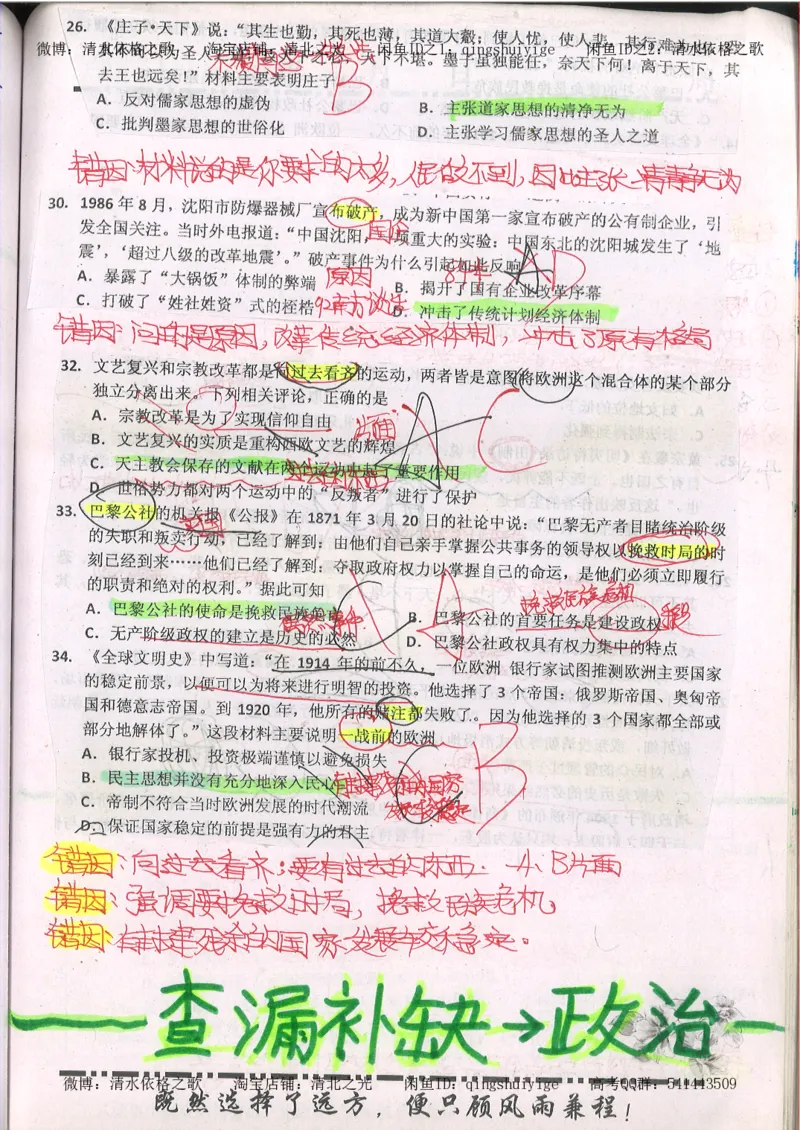 26. 《庄子•天下》说：“其生也勤，其死也薄，其道大觳；使人忧，使人悲，其行难为也，恐
微博：清水依格之歌 淘宝店铺：清北之光 闲鱼ID之1：qingshuiyige 闲鱼ID之2：清水依格之歌
其不可以为圣人之道，反天下之心，天下不堪。墨子虽独能任，奈天下何！离于天下，其
去王也远矣！”材料主要表明庄子
B
A．反对儒家思想的虚伪 B．主张道家思想的清净无为
C．批判墨家思想的世俗化 D．主张学习儒家思想的圣人之道
错因：材料说的是你要求的太多，人民做不到，因此主张清静无为
30. 1986 年 8 月，沈阳市防爆器械厂宣布破产，成为新中国第一家宣布破产的公有制企业，引
发全国关注。当时外电报道：“中国沈阳，一项重大的实验：中国东北的沈阳城发生了‘地
国企
震’，‘超过八级的改革地震’。”破产事件为什么引起如此反响
84年 A D
A．暴露了“大锅饭”体制的弊端 原因 B．揭开了国有企业改革序幕
C．打破了“姓社姓资”式的桎梏 92南方谈话 D．冲击了传统计划经济体制
错因：问的是原因，改革传统经济体制，冲击了原有格局
32. 文艺复兴和宗教改革都是向过去看齐的运动，两者皆是意图将欧洲这个混合体的某个部分
独立分离出来。下列相关评论，正确的是
A．宗教改革是为了实现信仰自由
片面 A C
B．文艺复兴的实质是重构西欧文艺的辉煌
C．天主教会保存的文献在两个运动中起了重要作用
D．世俗势力都对两个运动中的“反叛者”进行了保护
33. 巴黎公社的机关报《公报》在 1871 年 3 月 20 日的社论中说：“巴黎无产者目睹统治阶级
的失职和叛卖行动，已经了解到：由他们自己亲手掌握公共事务的领导权以挽救时局的时
刻已经到来……他们已经了解到：夺取政府权力以掌握自己的命运，是他们必须立即履行
的职责和绝对的权利。”据此可知
挽救民族危机
A．巴黎公社的使命是挽救民族危机 B．巴黎公社的首要任务是建设政权 手段
C．无产阶级政权的建立是历史的必然 D．巴黎公社政权具有权力集中的特点
34. 《全球文明史》中写道：“在 1914 年的前不久，一位欧洲 银行家试图推测欧洲主要国家
的稳定前景，以便可以为将来进行明智的投资。他选择了 3 个帝国：俄罗斯帝国、奥匈帝
国和德意志帝国。到 1920 年，他所有的赌注都失败了。因为他选择的 3 个国家都全部或
部分地解体了。”这段材料主要说明一战前的欧洲
A．银行家投机、投资极端谨慎以避免损失
B
B．民主思想并没有充分地深入民心
C．帝制不符合当时欧洲发展的时代潮流
D．保证国家稳定的前提是强有力的君主
错因：向过去看齐：要有过去的东西． A、B片面
错因：强调要挽救时局，挽救民族危机。
错因：有封建残余的国家发展较不稳定。
查漏补缺→政治
微博：清水依格之歌 淘宝店铺：清北之光 闲鱼ID：qingshuiyige 高考QQ群：541443509
既然选择了远方，便只顾风雨兼程！